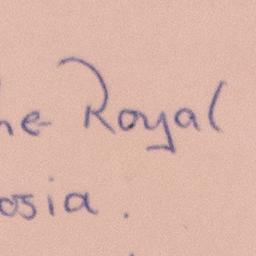 he Royal
osia.